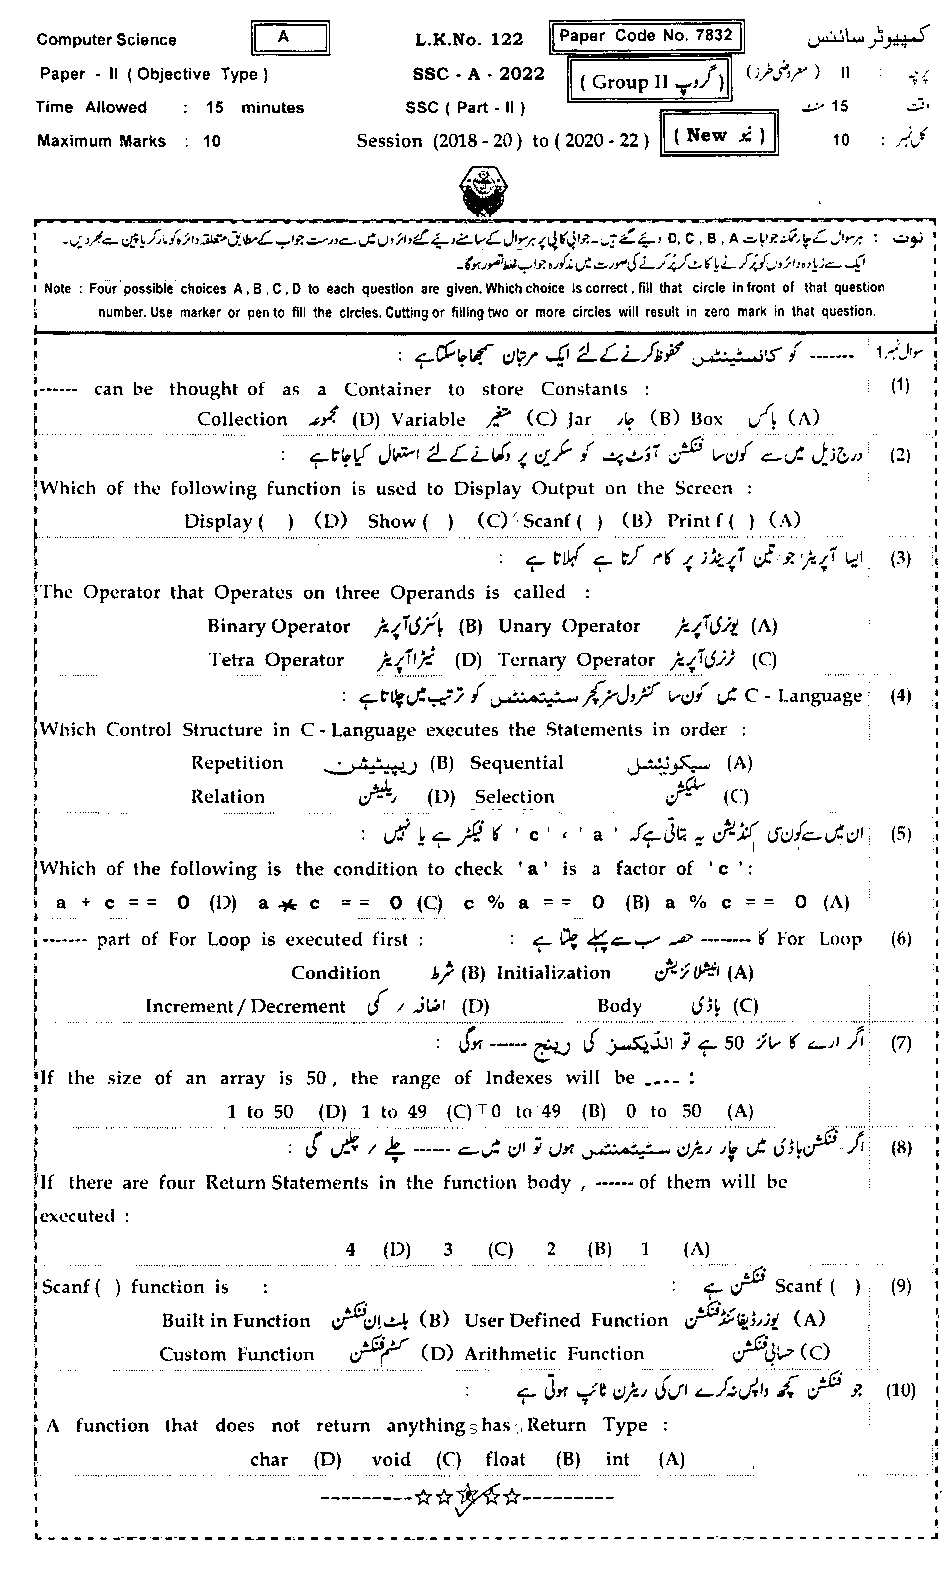 Computer Science A L.K.No. 122 Paper Code No. 7832 کمپیوٹر سائنس
Paper - II ( Objective Type ) SSC - A - 2022 ( Group II گروپ ) پرچہ : II ( معروضی طرز )
Time Allowed : 15 minutes SSC ( Part - II ) وقت : 15 منٹ
Maximum Marks : 10 Session (2018 - 20) to ( 2020 - 22 ) ( New نیو ) کل نمبر : 10
نوٹ : ہر سوال کے چار ممکنہ جوابات D, C, B, A دیئے گئے ہیں۔ جوابی کاپی پر ہر سوال کے سامنے دیئے گئے دائروں میں سے درست جواب کے مطابق متعلقہ دائرہ کو مارکر یا پین سے بھر دیں۔
ایک سے زیادہ دائروں کو پُر کرنے یا کاٹ کر پُر کرنے کی صورت میں مذکورہ جواب غلط تصور ہوگا۔
Note : Four possible choices A , B , C , D to each question are given. Which choice is correct , fill that circle in front of that question
number. Use marker or pen to fill the circles. Cutting or filling two or more circles will result in zero mark in that question.
سوال نمبر 1 ------- کو کانسٹینٹس محفوظ کرنے کے لئے ایک مرتبان سمجھا جا سکتا ہے :
------ can be thought of as a Container to store Constants : (1)
Collection مجموعہ (D) Variable متغیر (C) Jar جار (B) Box باکس (A)
درج ذیل میں سے کون سا فنکشن آؤٹ پٹ کو سکرین پر دکھانے کے لئے استعمال کیا جاتا ہے : (2)
Which of the following function is used to Display Output on the Screen :
Display ( ) (D) Show ( ) (C) Scanf ( ) (B) Print f ( ) (A)
ایسا آپریٹر جو تین آپرینڈز پر کام کرتا ہے کہلاتا ہے : (3)
The Operator that Operates on three Operands is called :
Binary Operator بائنری آپریٹر (B) Unary Operator یونری آپریٹر (A)
Tetra Operator ٹیٹرا آپریٹر (D) Ternary Operator ٹرنری آپریٹر (C)
C - Language میں کون سا کنٹرول سٹرکچر سٹیٹمنٹس کو ترتیب میں چلاتا ہے : (4)
Which Control Structure in C - Language executes the Statements in order :
Repetition ریپیٹیشن (B) Sequential سیکوئنشل (A)
Relation ریلیشن (D) Selection سلیکشن (C)
ان میں سے کون سی کنڈیشن یہ بتاتی ہے کہ ' a ' ، ' c ' کا فیکٹر ہے یا نہیں : (5)
Which of the following is the condition to check ' a ' is a factor of ' c ' :
a + c = = 0 (D) a * c = = 0 (C) c % a = = 0 (B) a % c = = 0 (A)
------- part of For Loop is executed first : For Loop کا -------- حصہ سب سے پہلے چلتا ہے : (6)
Condition شرط (B) Initialization انیشلائزیشن (A)
Increment / Decrement اضافہ / کمی (D) Body باڈی (C)
اگر ارے کا سائز 50 ہے تو انڈیکسز کی رینج ------ ہوگی : (7)
If the size of an array is 50 , the range of Indexes will be ---- :
1 to 50 (D) 1 to 49 (C) 0 to 49 (B) 0 to 50 (A)
اگر فنکشن باڈی میں چار ریٹرن سٹیٹمنٹس ہوں تو ان میں سے ------ چلے / چلیں گی : (8)
If there are four Return Statements in the function body , ------ of them will be
executed :
4 (D) 3 (C) 2 (B) 1 (A)
Scanf ( ) function is : Scanf ( ) فنکشن ہے : (9)
Built in Function بلٹ ان فنکشن (B) User Defined Function یوزر ڈیفائنڈ فنکشن (A)
Custom Function کسٹم فنکشن (D) Arithmetic Function حسابی فنکشن (C)
جو فنکشن کچھ واپس نہ کرے اس کی ریٹرن ٹائپ ہوتی ہے : (10)
A function that does not return anything has Return Type :
char (D) void (C) float (B) int (A)